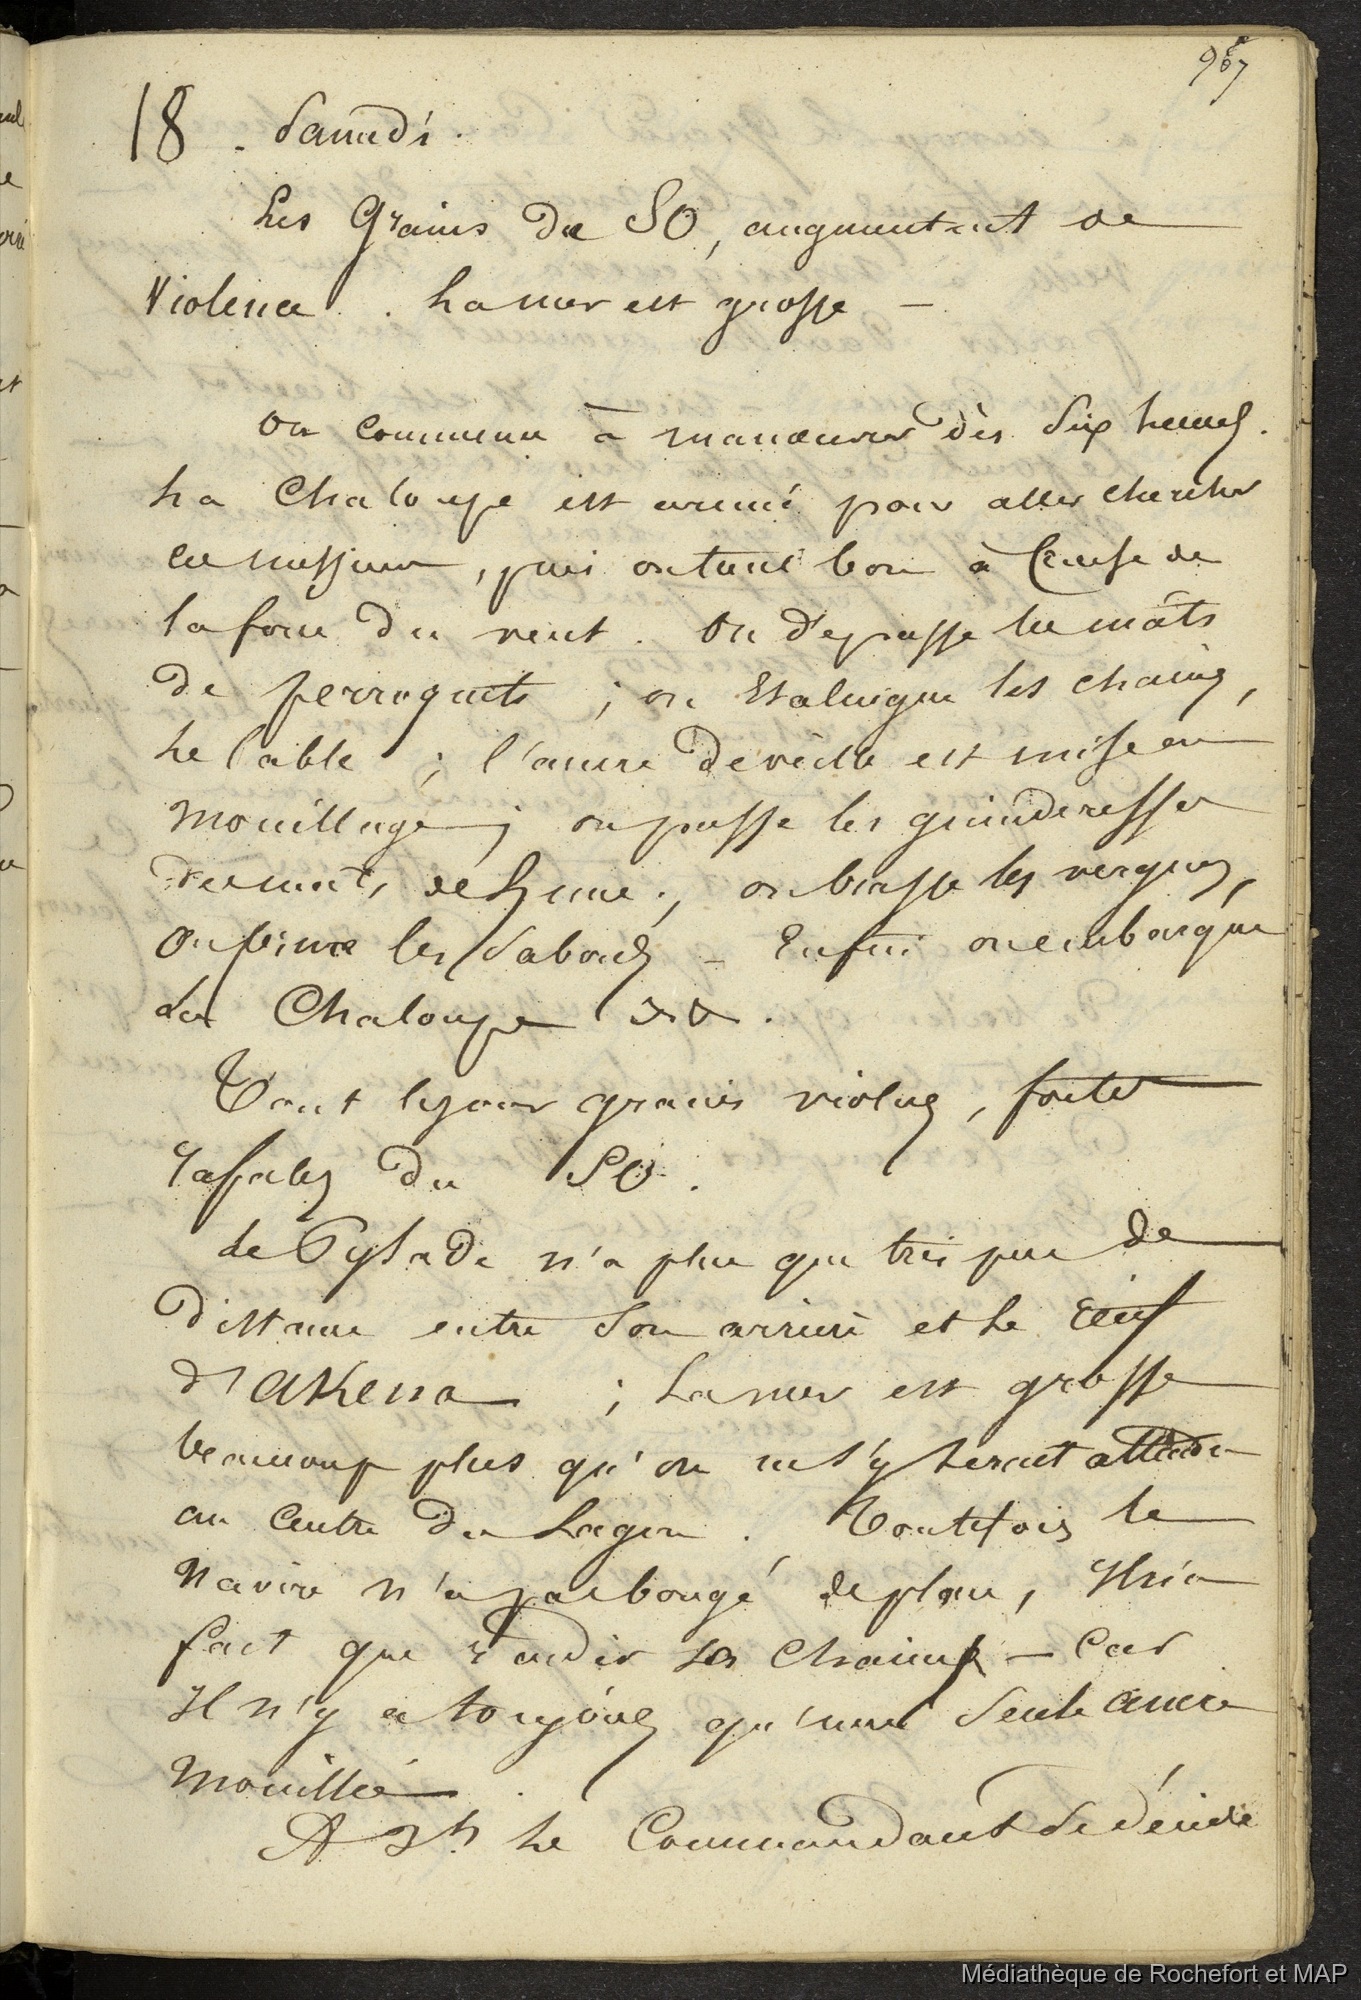 967
18. Samedi.
Les Grains du SO, augmentent de
Violence. La mer est grosse —
On commence à manoeuvrer dès six heures.
La Chaloupe est armée pour aller chercher
ces messieurs, puis on tient bon à Cause de
la force du vent. On dépasse les mâts
de perroquets ; on Etalingue les chaines,
Le Cable ; l'ancre de veille est mise en
mouillage ; on passe les guinderesses
des mats de hune ; on brasse les vergues,
On ferme les Sabords – Enfin on embarque
La Chaloupe &&.
Tout le jour grains violens, fortes
rafales du SO.
Le Pylade n'a plus que très peu de
distance entre son arrière et le récif
d'Akena ; La mer est grosse
beaucoup plus qu'on ne s'y serait attendu
au Centre du Lagon. Toutefois le
Navire n'a pas bougé de place, Il n'a
fait que raidir ses Chaines – Car
Il n'y a toujours qu'une Seule ancre
mouillée.
A 3h Le Commandant se décide
Médiathèque de Rochefort et MAP